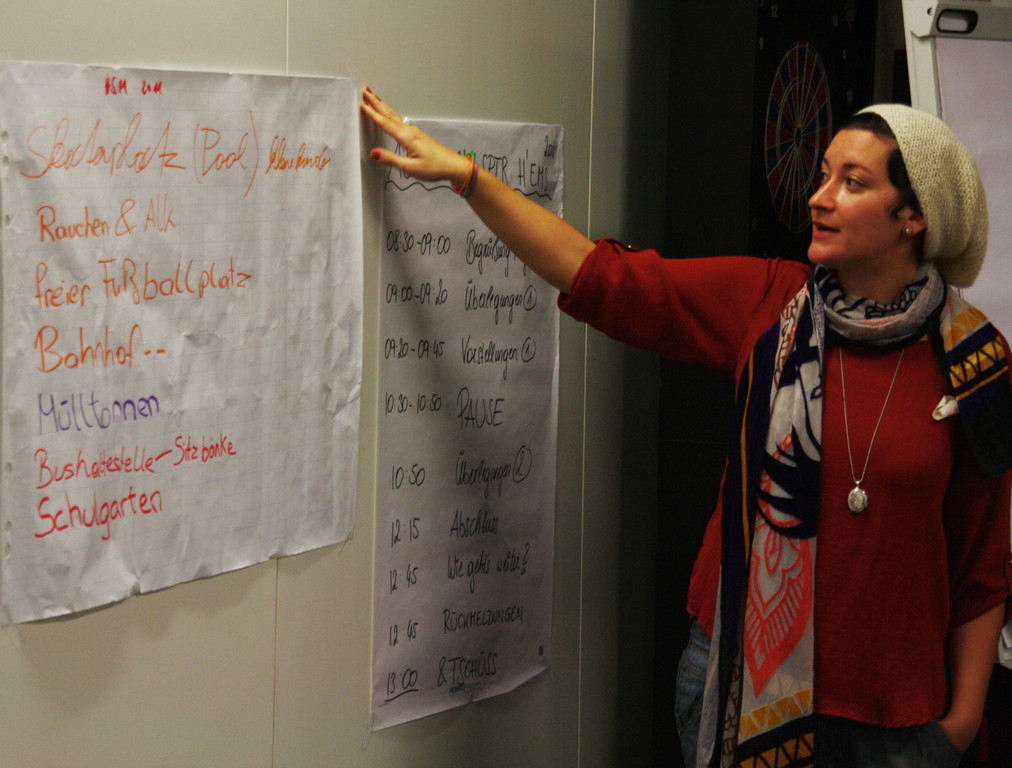 Skaterplatz (Pool)
Rauchen & Alk
freier Fußballplatz
Bahnhof --
Mülltonnen
Bushaltestelle - Sitzbänke
Schulgarten
SPTR H'EM
08:30-09:00 Begrüßung
09:00-09:20 Überlegungen ①
09:20-09:45 Vorstellungen ①
10:30-10:50 PAUSE
10:50 Überlegungen ②
12:15 Abschluss
12:45 Wie geht's weiter?
12:45 RÜCKMELDUNGEN
13:00 & TSCHÜSS